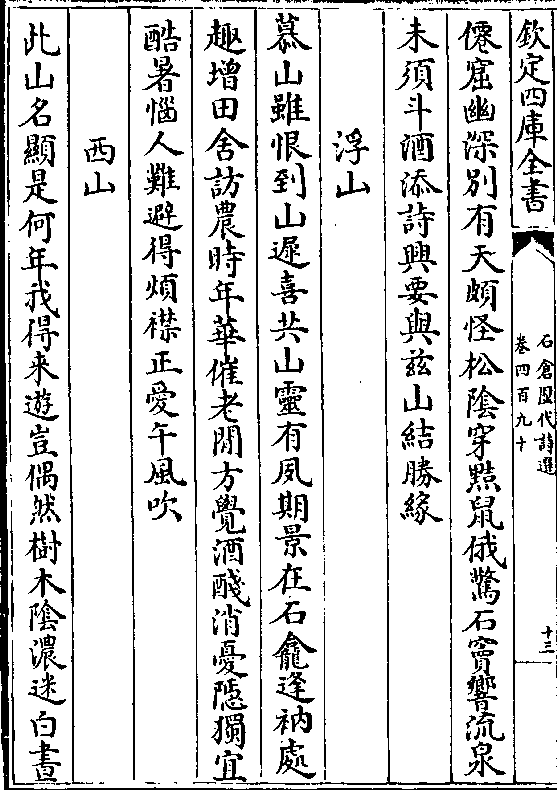 欽定四庫全書
石倉歷代詩選
卷四百九十
十三
僊窟幽深別有天頗怪松陰穿㸃鼠俄驚石竇響流泉
未須斗酒添詩興要與兹山結勝緣
浮山
慕山雖恨到山遲喜共山靈有夙期景在石龕逢衲處
趣增田舍訪農時年華催老閒方覺酒醆消憂隠獨宜
酷暑惱人難避得煩襟正愛午風吹
西山
此山名顯是何年我得来遊豈偶然樹木陰濃迷白晝